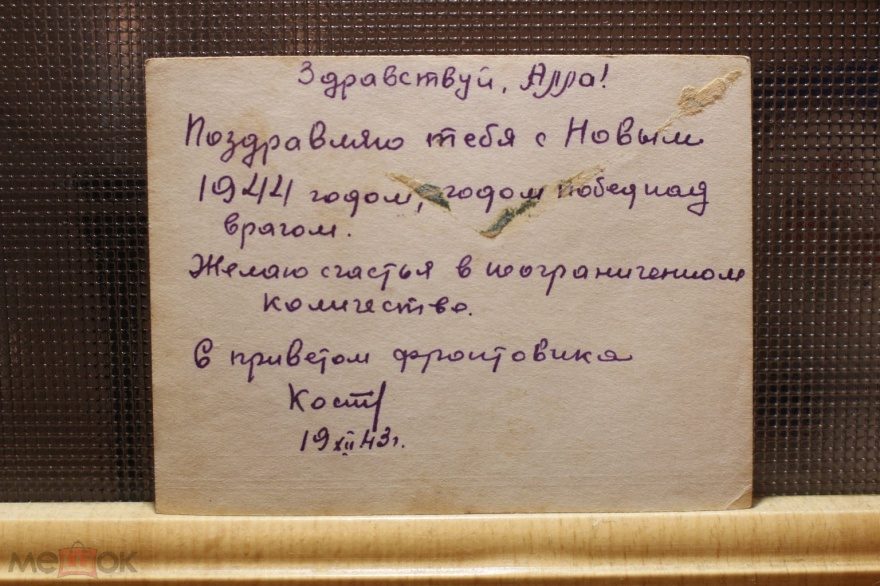 Здравствуй, Алла!
Поздравляю тебя с Новым
1944 годом, годом побед над
врагом.
Желаю счастья в неограниченном
количестве.
С приветом фронтовика
19 XII 43г.
мешок